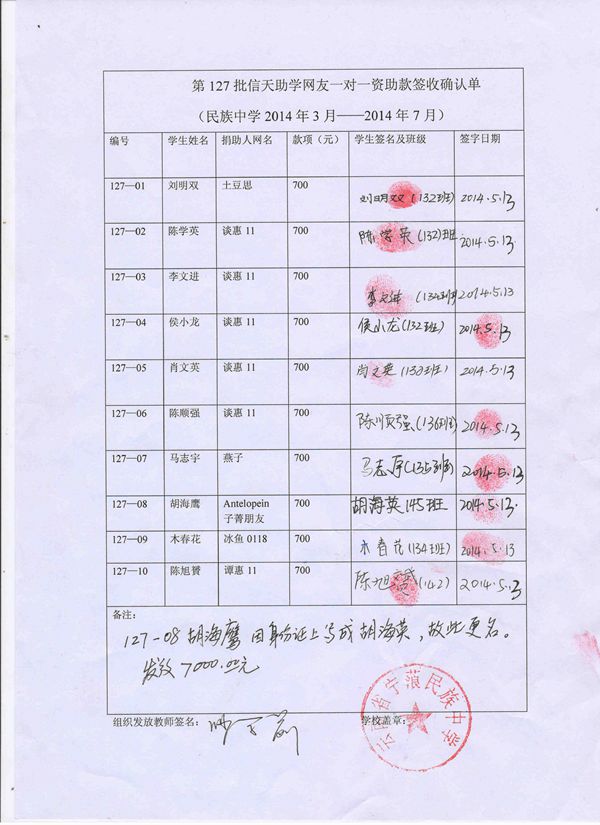 第 127 批信天助学网友一对一资助款签收确认单
（民族中学 2014 年 3 月——2014 年 7 月）
编号 学生姓名 捐助人网名 款项（元） 学生签名及班级 签字日期
127—01 刘明双 土豆思 700 刘明双(132班) 2014.5.13
127—02 陈学英 谈惠 11 700 陈学英(132)班 2014.5.13.
127—03 李文进 谈惠 11 700 李文进(132班) 2014.5.13
127—04 侯小龙 谈惠 11 700 侯小龙(132班) 2014.5.13
127—05 肖文英 谈惠 11 700 肖文英(130班) 2014.5.13
127—06 陈顺强 谈惠 11 700 陈顺强(136班) 2014.5.13
127—07 马志宇 燕子 700 马志宇(135班) 2014.5.13
127—08 胡海鹰 Antelopein 700 胡海英145班 2014.5.13.
子菁朋友
127—09 木春花 冰鱼 0118 700 木春花(134班) 2014.5.13
127—10 陈旭赟 谭惠 11 700 陈旭赟(142) 2014.5.13
备注：
127-08胡海鹰因身份证上写成胡海英，故此更名。
发放7000.00元
组织发放教师签名：
学校盖章：
云南省宁蒗民族中学